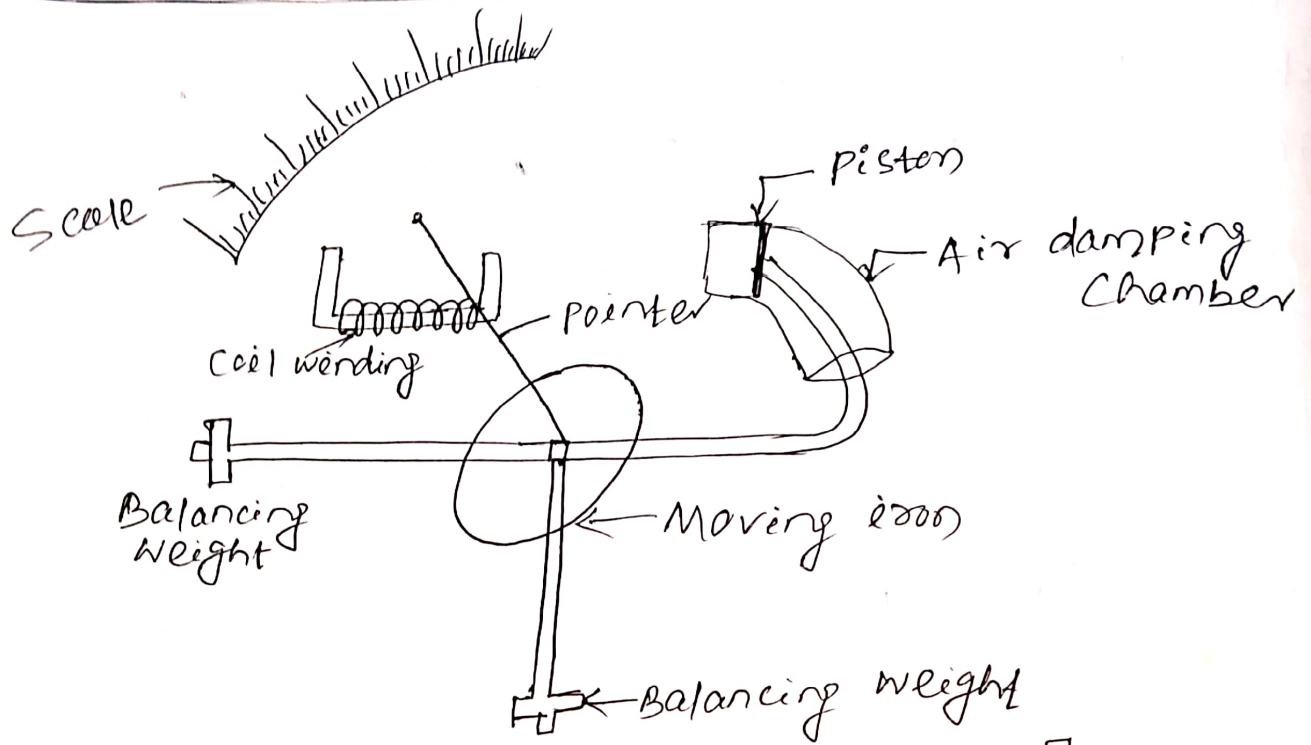 Piston
Scale
Air damping
Chamber
Pointer
Coil winding
Balancing
Weight
Moving iron
Balancing weight